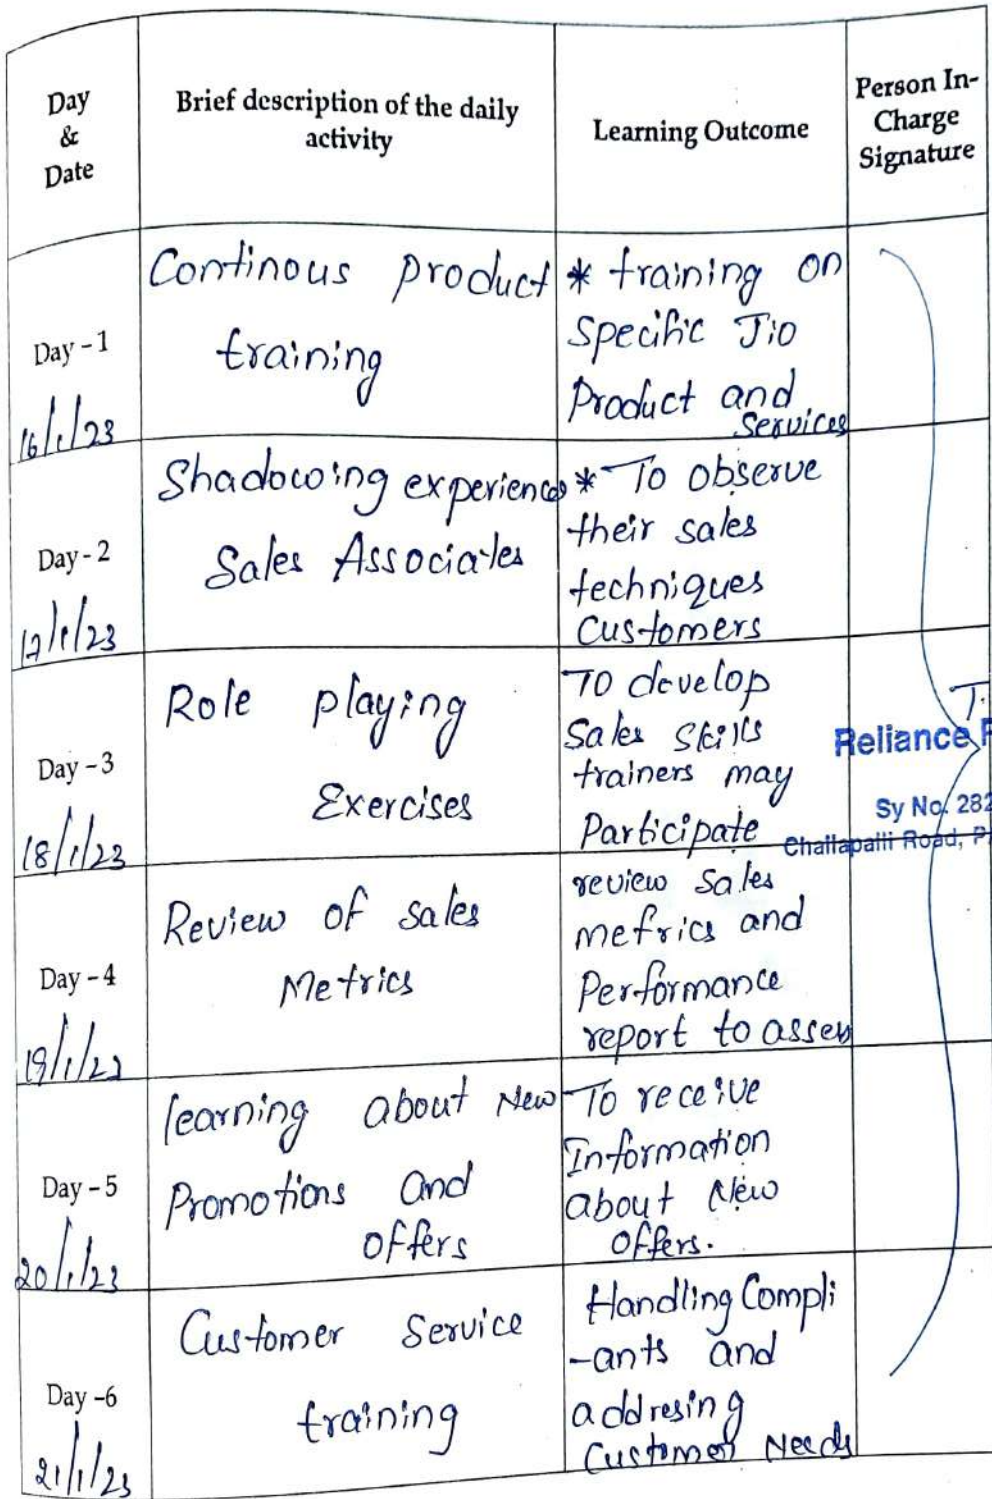 Day
&
Date
Brief description of the daily
activity
Learning Outcome
Person In-
Charge
Signature
Day - 1
16/1/23
Continous product
training
* training on
specific Jio
Product and
Services
Day - 2
17/1/23
Shadowing experienced
Sales Associates
* To observe
their sales
techniques
Customers
Day - 3
18/1/23
Role playing
Exercises
To develop
Sales Skills
trainers may
Participate
T.
Reliance
Sy No. 282
Challapalli Road, P
Day - 4
19/1/23
Review of sales
Metrics
review sales
metrics and
Performance
report to assess
Day - 5
20/1/23
learning about New
Promotions and
offers
To receive
Information
about New
offers.
Day -6
21/1/23
Customer Service
training
Handling Compli
-ants and
addresing
Customer Needs